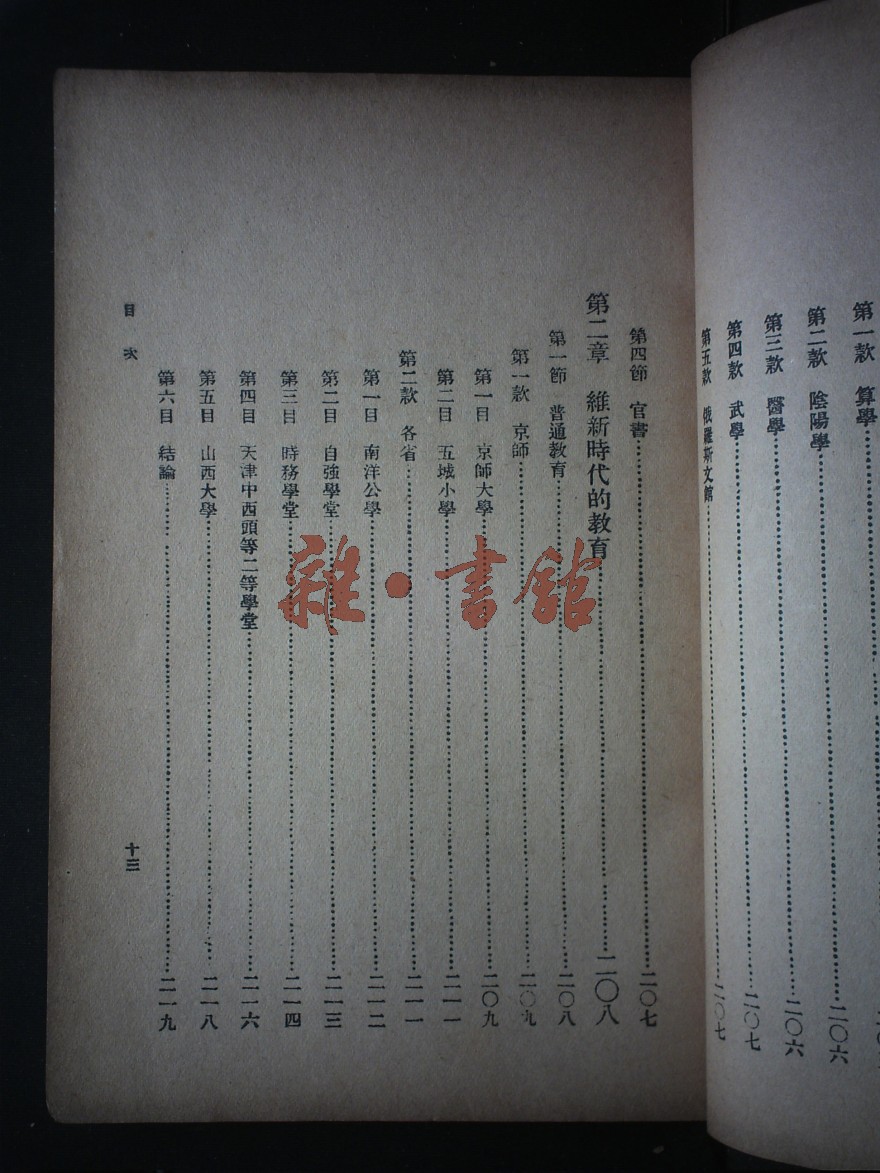 第一款　算學
第二款　陰陽學………二〇六
第三款　醫學………二〇六
第四款　武學………二〇七
第五款　俄羅斯文館………二〇七
第四節　官書………二〇七
第二章　維新時代的教育………二〇八
第一節　普通教育………二〇八
第一款　京師………二〇九
第一目　京師大學………二〇九
第二目　五城小學………二一一
第二款　各省………二一一
第一目　南洋公學………二一二
第二目　自強學堂………二一三
第三目　時務學堂………二一四
第四目　天津中西頭等二等學堂………二一六
第五目　山西大學………二一八
第六目　結論………二一九
目次
十三
雜·書館